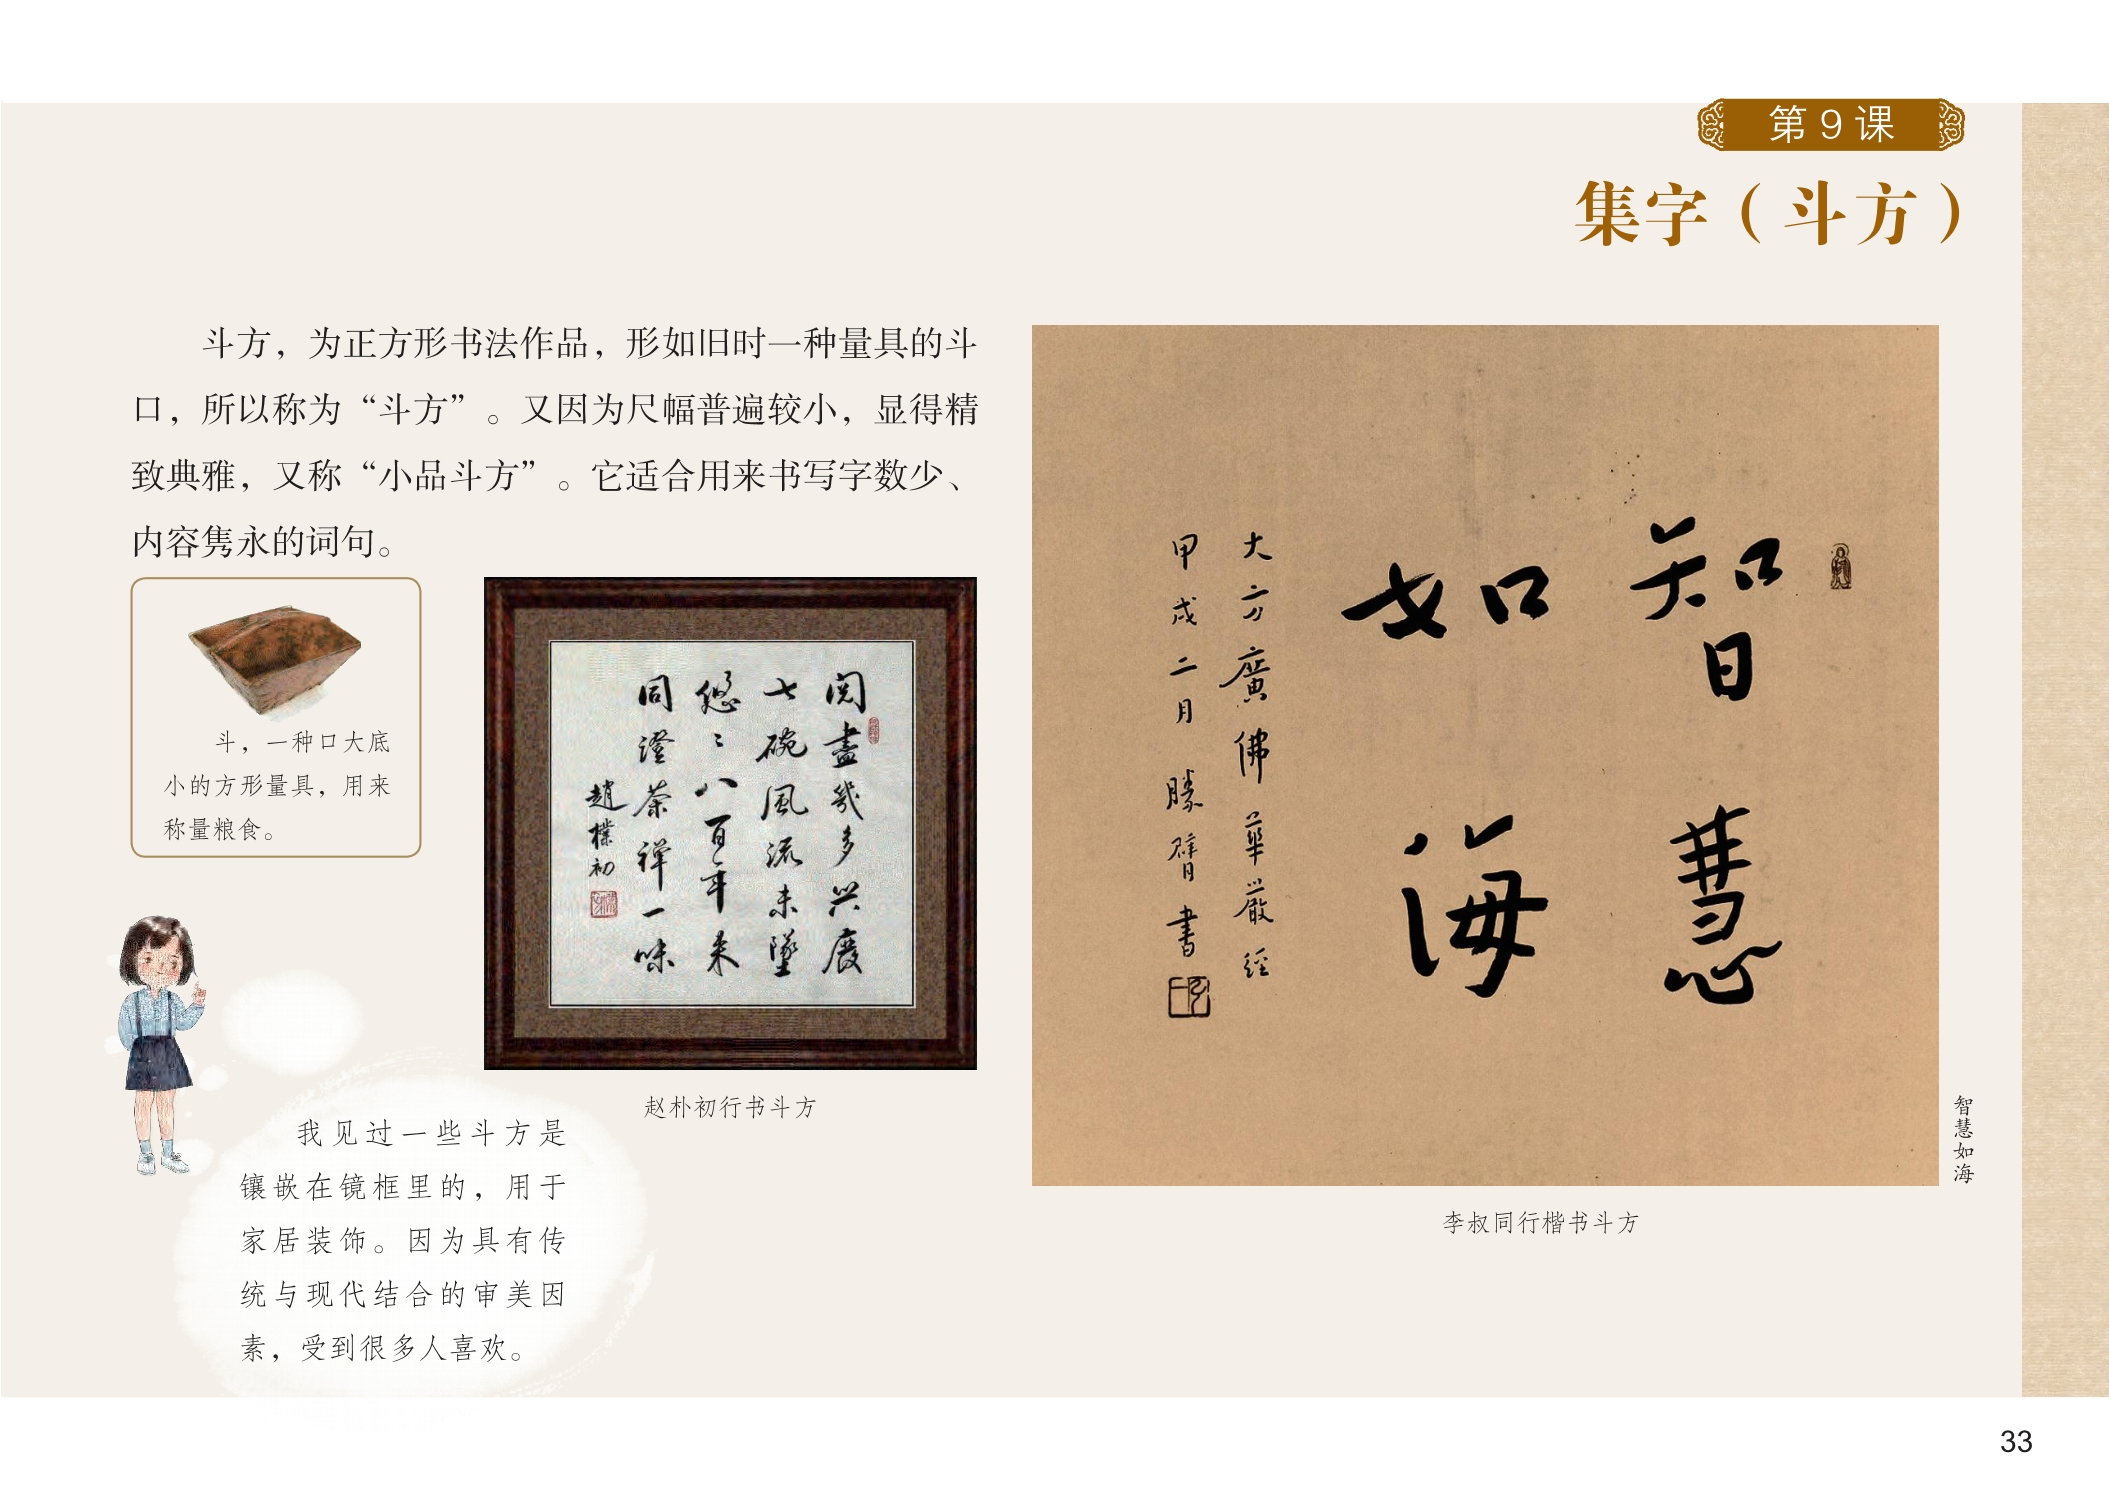 第9课
集字（斗方）
斗方，为正方形书法作品，形如旧时一种量具的斗
口，所以称为“斗方”。又因为尺幅普遍较小，显得精
致典雅，又称“小品斗方”。它适合用来书写字数少、
内容隽永的词句。
斗，一种口大底
小的方形量具，用来
称量粮食。
阅盡幾多兴廢
七碗風流未墜
悠〻八百年来
同證茶禅一味
趙樸初
赵朴初行书斗方
我见过一些斗方是
镶嵌在镜框里的，用于
家居装饰。因为具有传
统与现代结合的审美因
素，受到很多人喜欢。
智慧
如海
大方廣佛華嚴經
甲戌二月 勝臂書
智慧如海
李叔同行楷书斗方
33